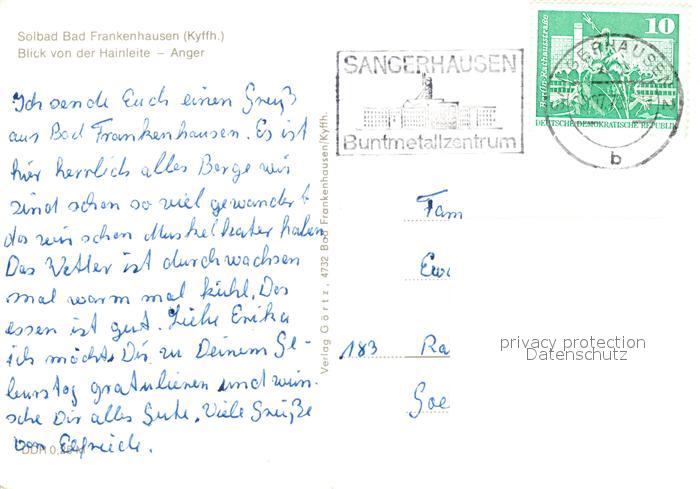 Solbad Bad Frankenhausen (Kyffh.)
Blick von der Hainleite – Anger
Ich sende Euch einen Gruß
aus Bad Frankenhausen. Es ist
hier herrlich alles Berge wir
sind schon so viel gewandert
das wir schon Muskelkater haben
Das Wetter ist durchwachsen
mal warm mal kühl. Das
essen ist gut. Liebe Erika
ich möchte Dir zu Deinem Ge-
burstag gratulieren und wün-
sche Dir alles Gute. Viele Grüße
von
DDR 0,
Verlag Görtz, 4732 Bad Frankenhausen/Kyffh.
SANGERHAUSEN
Buntmetallzentrum
10
Berlin, Rathausstraße
DEUTSCHE DEMOKRATISCHE REPUBLIK
SANGERHAUSEN 2
b
Fam
183 Ra
Goe
privacy protection
Datenschutz